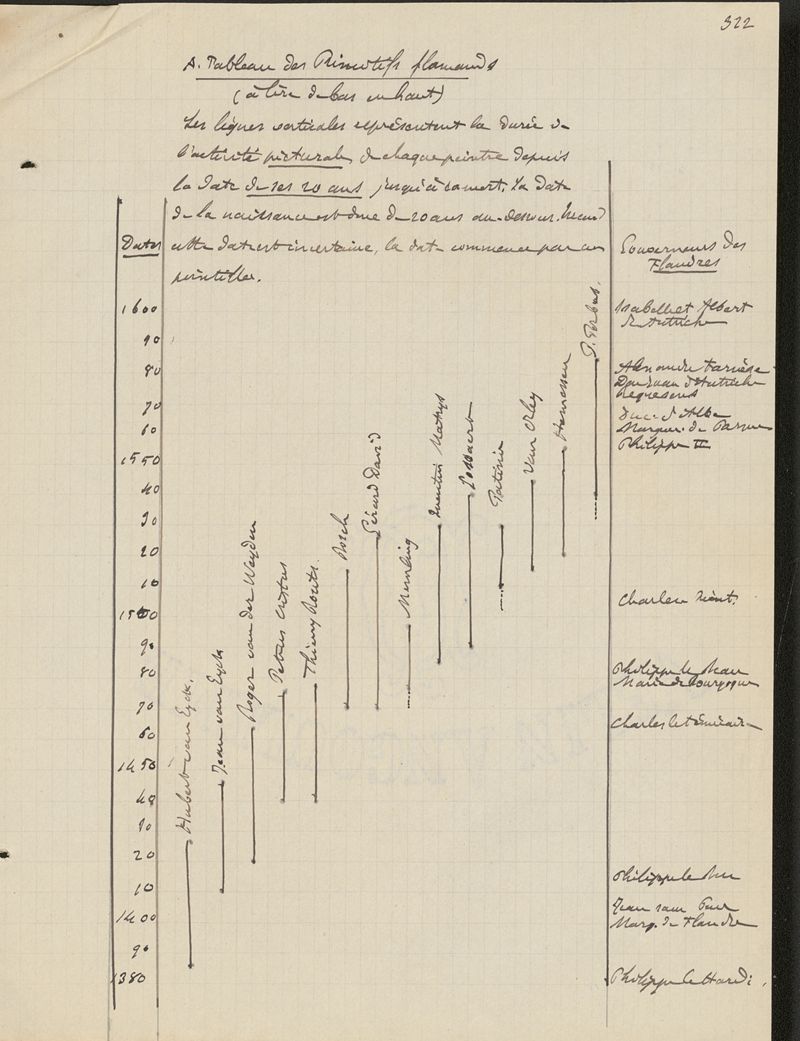 322
A. Tableau des Primitifs flamands
(à lire de bas en haut)
Les lignes verticales représentent la durée de
l'activité picturale, de chaque peintre depuis
la date de ses 20 ans jusqu'à sa mort. La date
de la naissance est donc de 20 ans au-dessous.
Dates
cette date est incertaine, la date commence par un
pointillé.
Gouverneurs des
Flandres
1600
90
80
70
60
1550
40
30
20
10
1500
90
80
70
60
1450
40
30
20
10
1400
90
1380
Hubert van Eyck.
Jean van Eyck
Roger van der Weyden
Petrus Cristus
Thierry Bouts.
Bosch
Gérard David
Memling
Quentin Matsys
Gossaert
Patinir
Van Orley
Hemessen
P. Porbus.
Isabelle et Albert
d'Autriche
Alexandre Farnèse
Don Juan d'Autriche
Requesens
Duc d'Albe
Marguer. de Parme
Philippe II
Charles Quint.
Philippe le Beau
Marie de Bourgogne
Charles le téméraire
Philippe le Bon
Jean sans Peur
Marg. de Flandre
Philippe le Hardi.